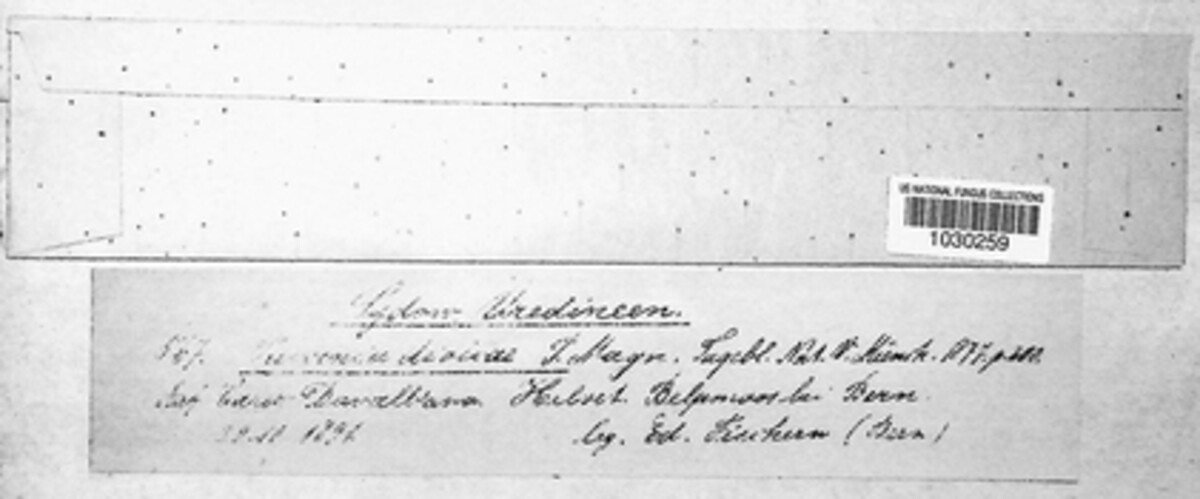 US NATIONAL FUNGUS COLLECTIONS
1030259
Sydow, Uredineen.
Puccinia dioicae P. Magn. Tagebl. Nat. V. Münch. 1877. p.
Auf Carex Davalliana Helvet. Belpmoos bei Bern.
1891
leg. Ed. Fischern (Bern)